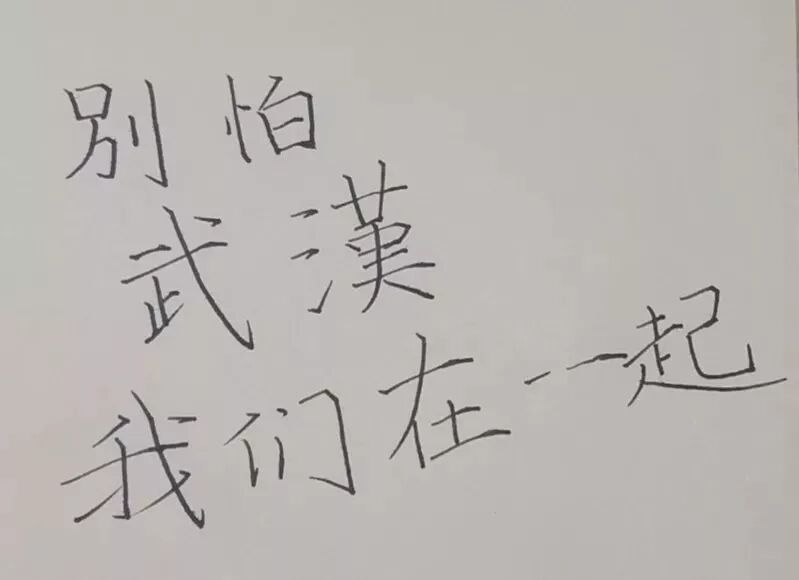 別怕
武漢
我们在一起